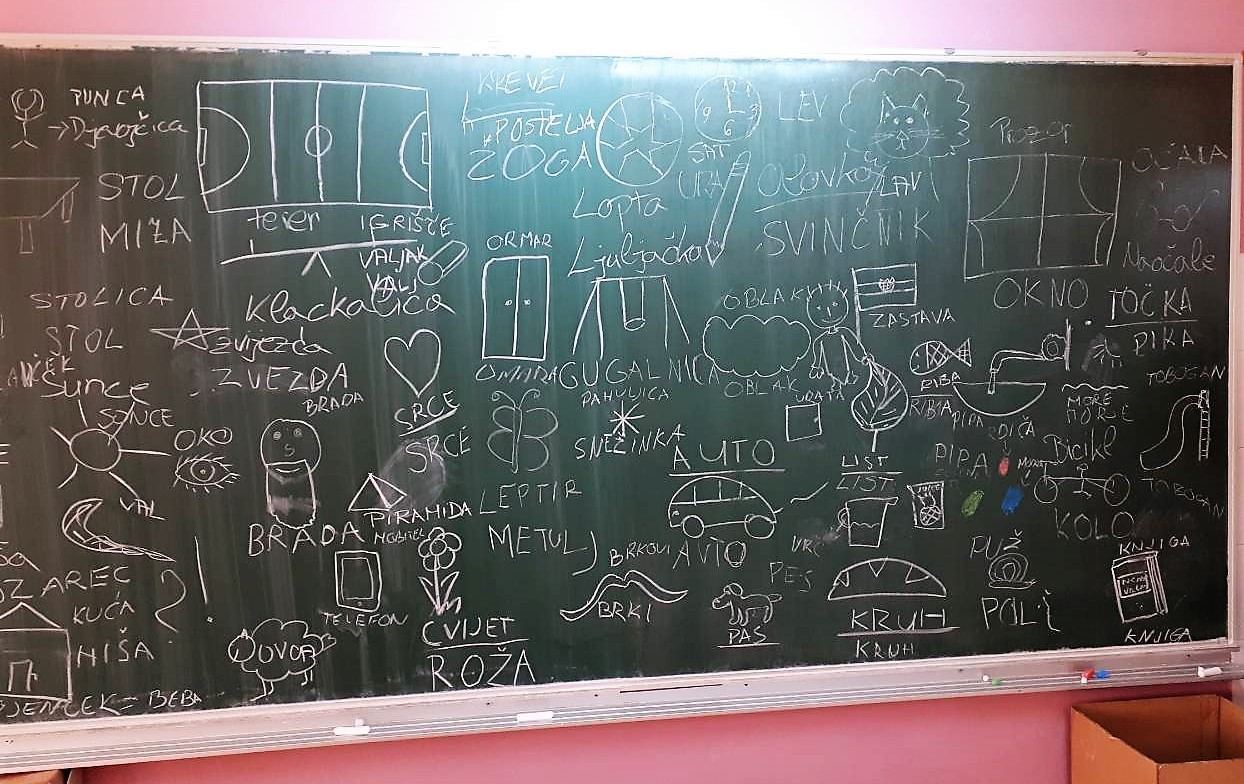 PUNCA
→Djevojčica
STOL
MIZA
STOLICA
STOL
Sunce
SONCE
VAL
KUĆA
HIŠA
BEBA
teren
IGRIŠČE
VALJAK
VALJ
Klackalica
zvijezda
ZVEZDA
OKO
BRADA
BRADA
SRCE
SRCE
PIRAMIDA
MOBITEL
TELEFON
OVCA
CVIJET
ROŽA
KREVET
POSTELJA
ŽOGA
Lopta
SAT
URA
ORMAR
OMARA
Ljuljačka
GUGALNICA
PAHULJICA
SNEŽINKA
LEPTIR
METULJ
AUTO
AVTO
BRKOVI
BRKI
PES
PAS
LEV
LAV
Olovka
SVINČNIK
OBLAK
OBLAK
ZASTAVA
VRATA
LIST
LIST
JUICE
KRUH
KRUH
Prozor
OKNO
RIBA
RIBA
PIPA
PIPA
MORE
MORJE
Bicikl
KOLO
PUŽ
POLŽ
OČALA
Naočale
TOČKA
PIKA
TOBOGAN
TOBOGAN
KNJIGA
KNJIGA